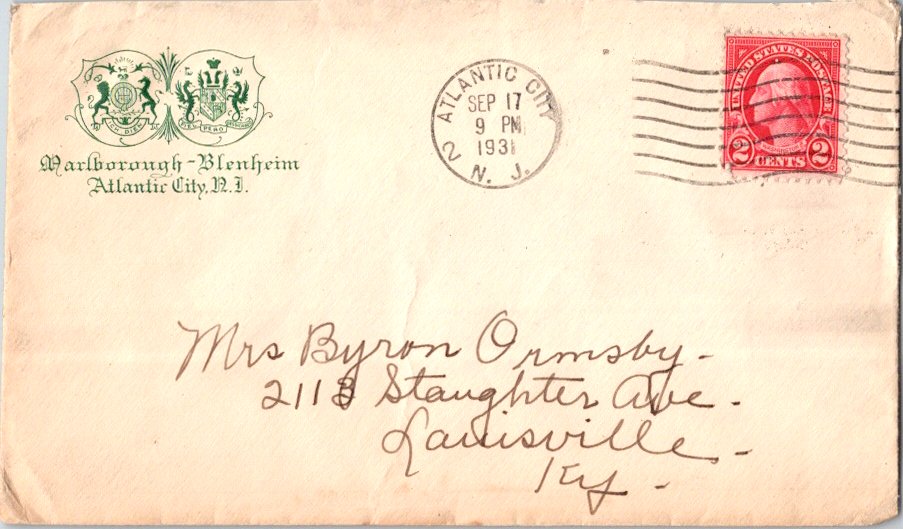 Marlborough-Blenheim
Atlantic City, N.J.
ATLANTIC CITY
2
SEP 17
9 PM
1931
N. J.
UNITED STATES POSTAGE
2 CENTS 2
Mrs Byron Ormsby-
2113 Slaughter Ave.
Louisville-
Ky-